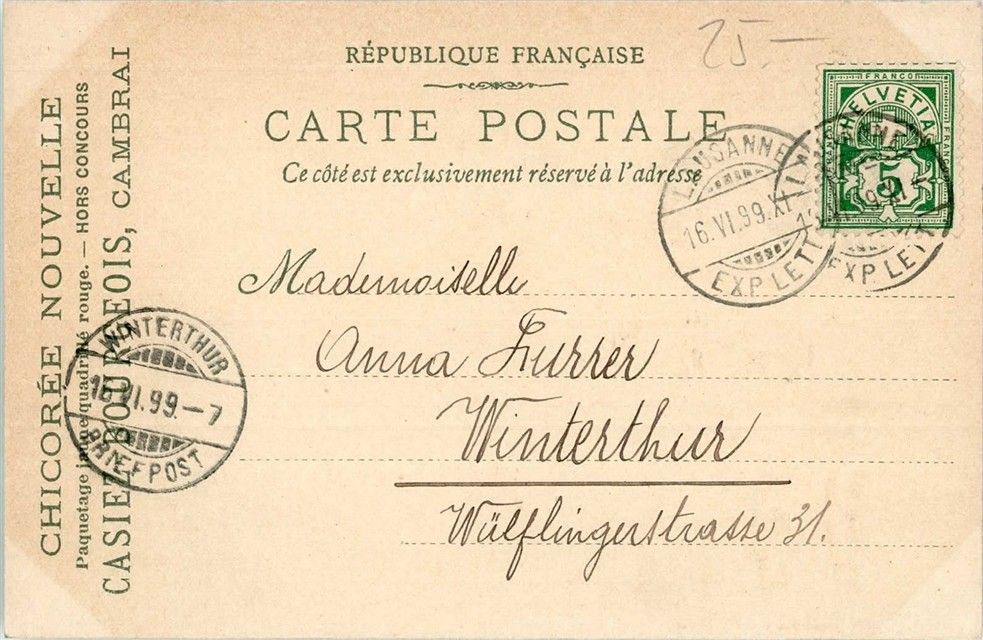 25.—
RÉPUBLIQUE FRANÇAISE
CARTE POSTALE
Ce côté est exclusivement réservé à l'adresse
FRANCO
HELVETIA
5
LAUSANNE
16.VI.99.XI
EXP. LETT
EXP. LETT
Mademoiselle
Anna Furrer
Winterthur
Wülflingerstrasse 31.
WINTERTHUR
16.VI.99.–7
BRIEFPOST
CHICORÉE NOUVELLE
Paquetage jaune quadrillé rouge. — HORS CONCOURS
CASIEZ-BOURGEOIS, CAMBRAI